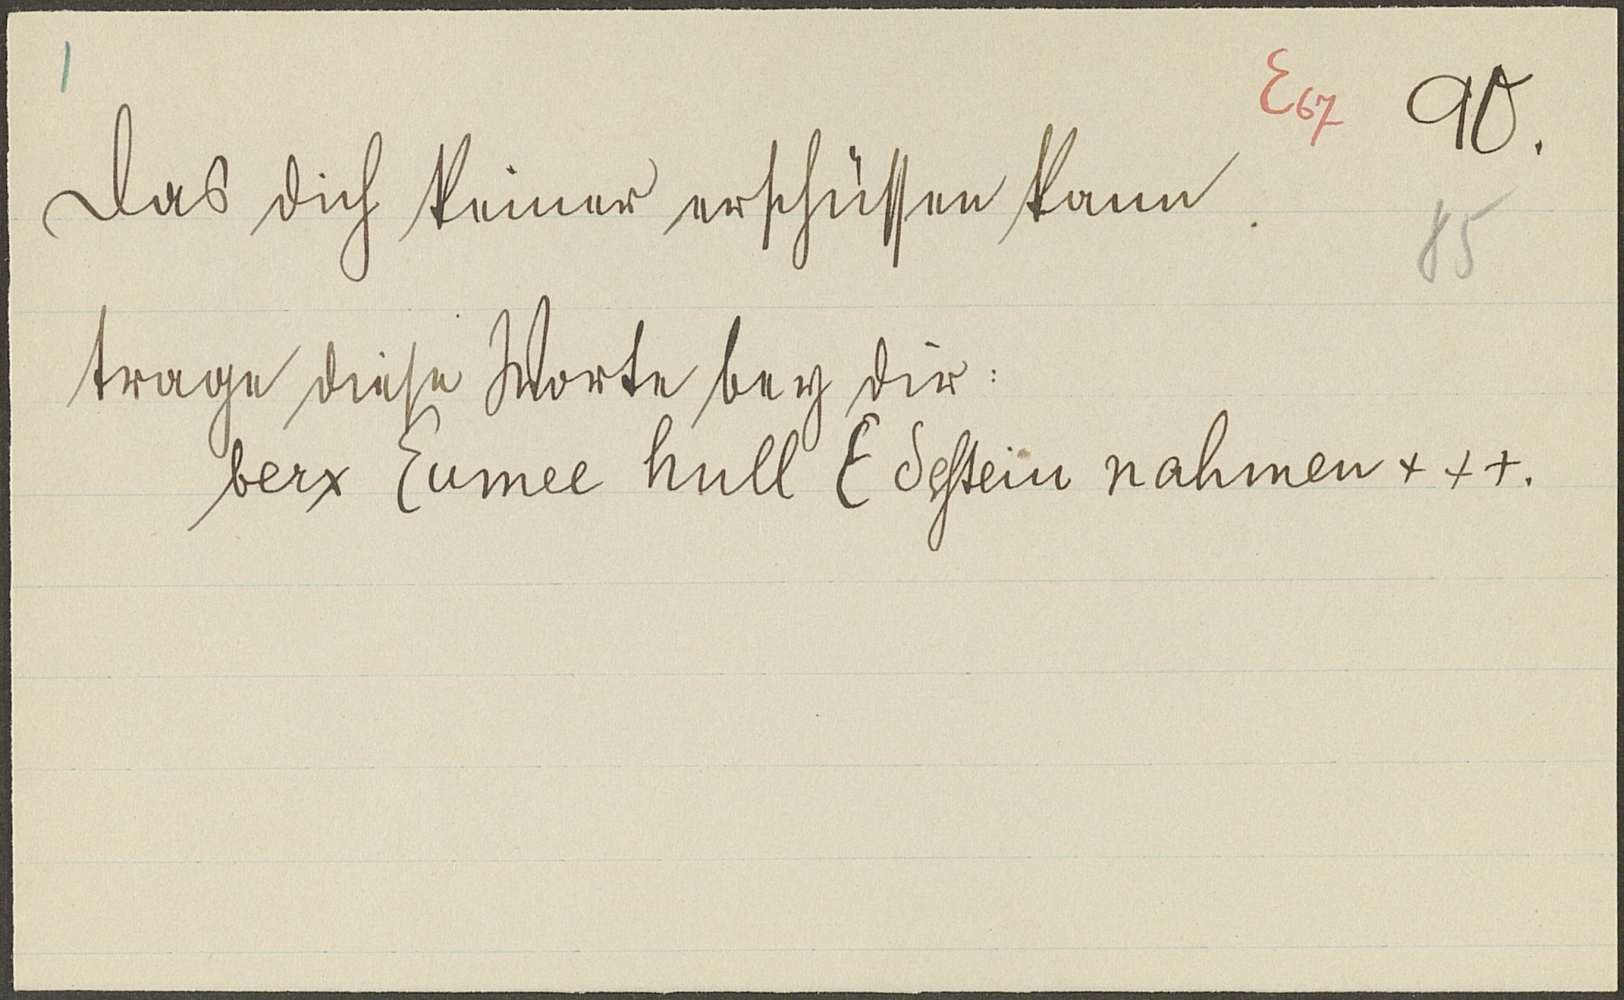 1
E67 90.
Das dich keiner erschüssen kann.
85
trage diese Worte bey dir:
berx Eumee hull E deſtein nahmen + + +.